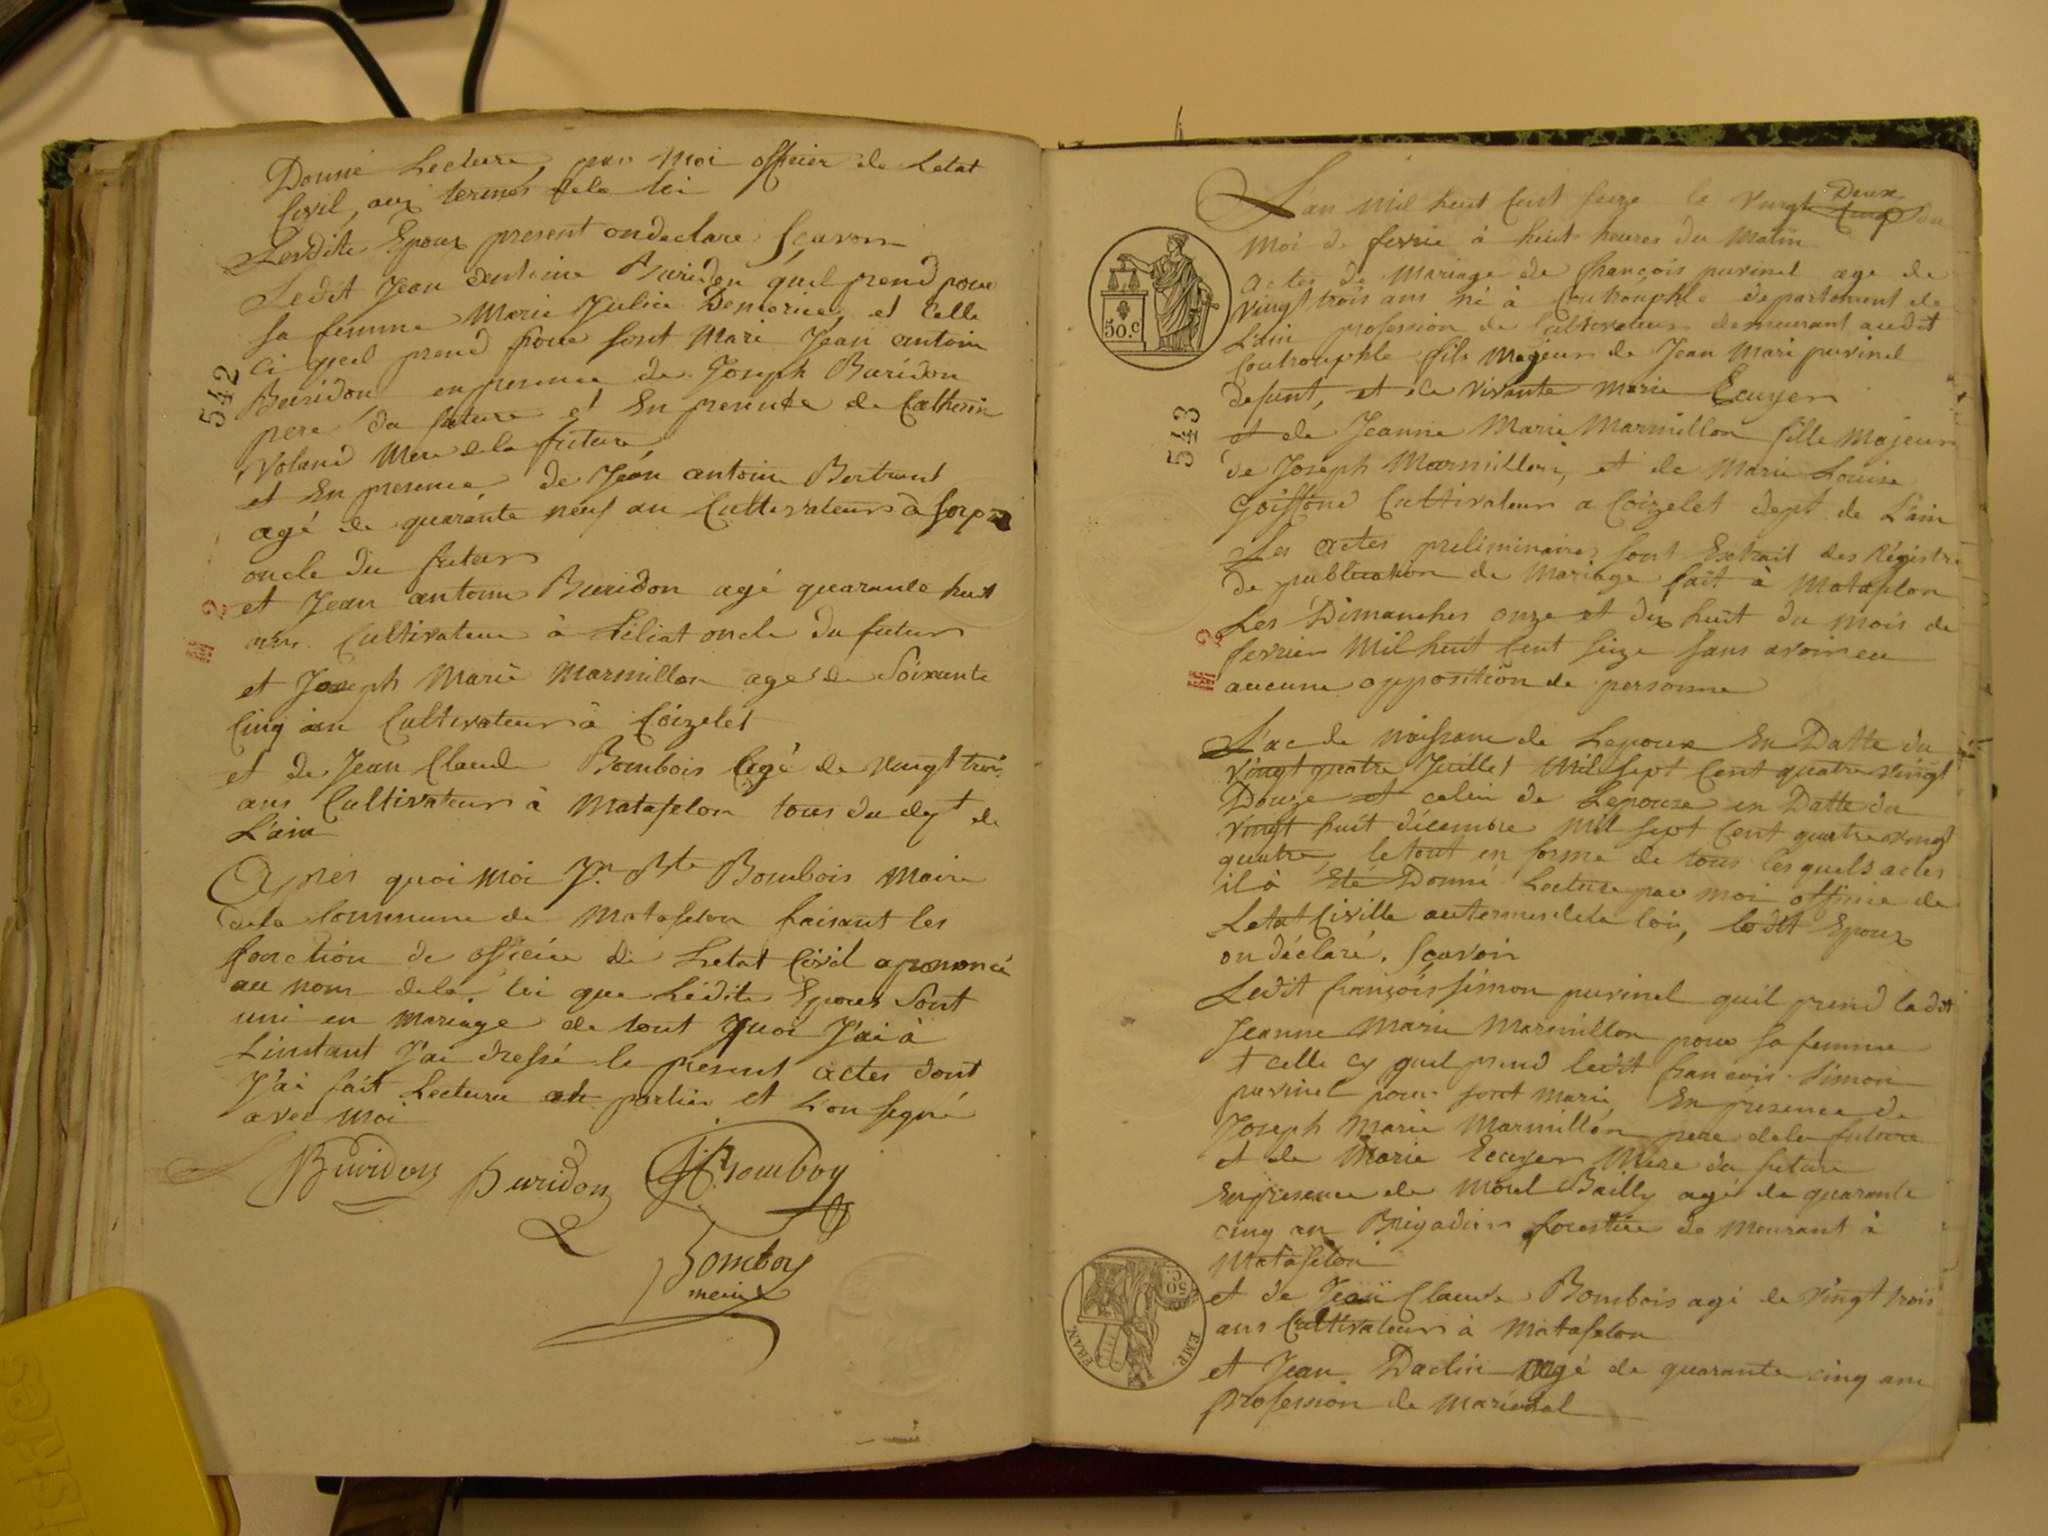 Donné Lecture par Moi officier de Letat
Civil, aux termes dela loi
Lesdits Epoux present on declare Sçavoir
Ledit Jean Antoine Buridon quil prend pour
sa femme Marie Julie et Celle
Ci quel prend pour sont Mari Jean antoine
Buridon en presence de Joseph Buridon
pere du future et En presence de Catherin
Voland Mere de la future
et En presence de Jean antoine Bertrand
agé de quarante neuf an Cultivateur à
oncle du futur
et Jean antoine Buridon agé quarante huit
ans Cultivateur à oncle du futur
et Joseph Marie Marmillon age de Soixante
Cinq an Cultivateur à Coizelet
et de Jean Claude Bombois Agé de vingt trois
ans Cultivateur à Matafelon tous du dept de
L'ain
Apres quoi moi Jn Bte Bombois Maire
dela Commune de Matafelon faisant les
fonction de officier de Letat Civil a prononcé
au nom dela loi que Lédits Epoux Sont
uni en mariage de tout Quoi J'ai à
Linstant J'ai dressé le présent actes dont
J'ai fait Lecture au partie et L'on signé
avec moi
Buridon Buridon Bomboy
Bomboy
maire
542
L'an Mil huit Cent seize le Vingt Deux Cinq du
Moi de fevrie à huit heures du Matin
Actes de Mariage de françois puvinel age de
vingt trois ans né à Coutrouphle departement de
L'ain profession de Cultivateur demeurant audit
Coutrouphle fils Majeur de Jean Mari puvinel
defunt, et de vivante Marie Ecuyer
et de Jeanne Marie Marmillon fille Majeur
de Joseph Marmillon, et de Marie Louise
Goiffond Cultivateur a Coizelet dept de L'ain
Les actes preliminaires sont Extrait des Régistre
de publication de Mariage fait à Matafelon
Les Dimanches onze et dix huit du mois de
fevrier Mil huit Cent seize sans avoir eu
aucune opposition de personne
L'ac de naissane de Lepoux En Datte du
vingt quatre Juillet Mil sept Cent quatre vingt
Douze et celui de Lepouse en Datte du
vingt huit décembre Mil sept Cent quatre vingt
quatre, le tout en forme de tous lesquels actes
il à Eté Donné Lecture par moi officie de
Letat Civille au termes dela loi, ledit Epoux
on déclaré. Sçavoir
Ledit françois simon puvinel quil prend ladit
Jeanne Marie Marmillon pour sa femme
et celle cy quel prend ledit francois simon
puvinel pour sont Mari, En présence de
Joseph Marie Marmillon pere dela future
et de Marie Ecuyer Mère du future
En présence de Morel Bailly agé de quarante
cinq an Brigadier forestier de Meurant à
Matafelon
et de Jean Claude Bombois agé de vingt trois
ans Cultivateur à Matafelon
et Jean Daclin agé de quarante cinq ans
profession de Marechal
543
50.c
50 C.
EMP. FRAN.